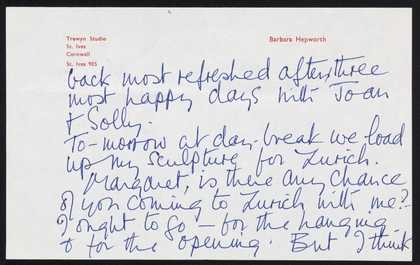 Trewyn Studio
St. Ives
Cornwall
St. Ives 905
Barbara Hepworth
back most refreshed after three
most happy days with Joan
& Solly.
To-morrow at day-break we load
up my sculpture for Zurich.
Margaret, is there any chance
of you coming to Zurich with me? -
I ought to go - for the hanging
& for the opening. But I think